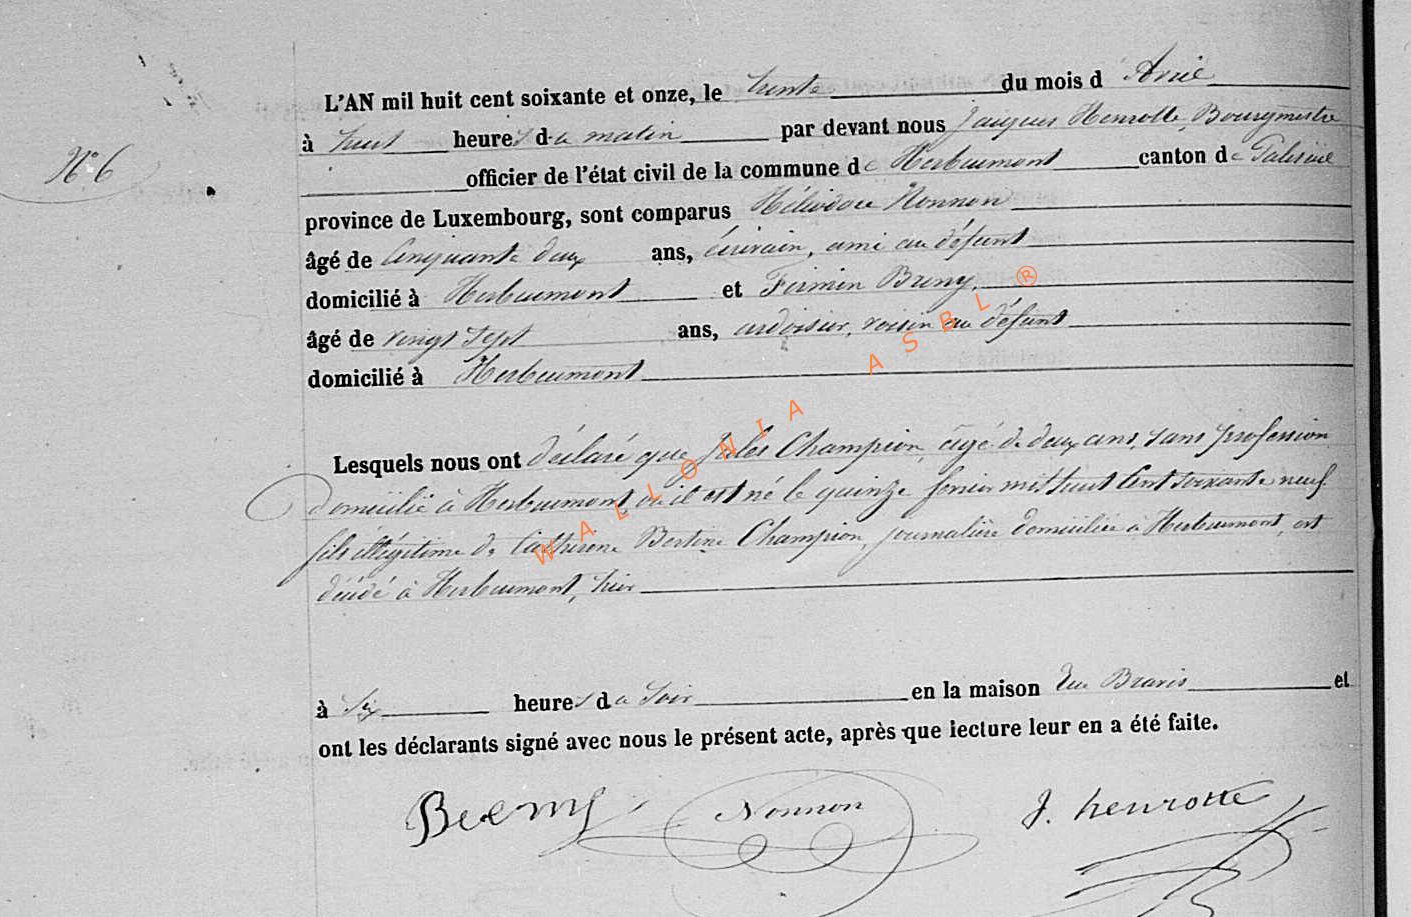 L'AN mil huit cent soixante et onze, le trente du mois d'Avril
à huit heures du matin par devant nous Jacques Henrotte, Bourgmestre
N° 6
officier de l'état civil de la commune de Herbeumont canton de Paliseul
province de Luxembourg, sont comparus Héliodore Nonnon
âgé de Cinquante deux ans, écrivain, ami au défunt
domicilié à Herbeumont et Firmin Bremy,
âgé de vingt sept ans, ardoisier, voisin au défunt
domicilié à Herbeumont
Lesquels nous ont déclaré que Jules Champion, âgé de deux ans, sans profession
domicilié à Herbeumont, où il est né le quinze février mil huit Cent soixante neuf
fils illégitime de Catherine Bertine Champion, journalière domiciliée à Herbeumont, est
décédé à Herbeumont, hier
à six heures du soir en la maison rue et
ont les déclarants signé avec nous le présent acte, après que lecture leur en a été faite.
Nonnon J. henrotte
WALLONIA ASBL ®